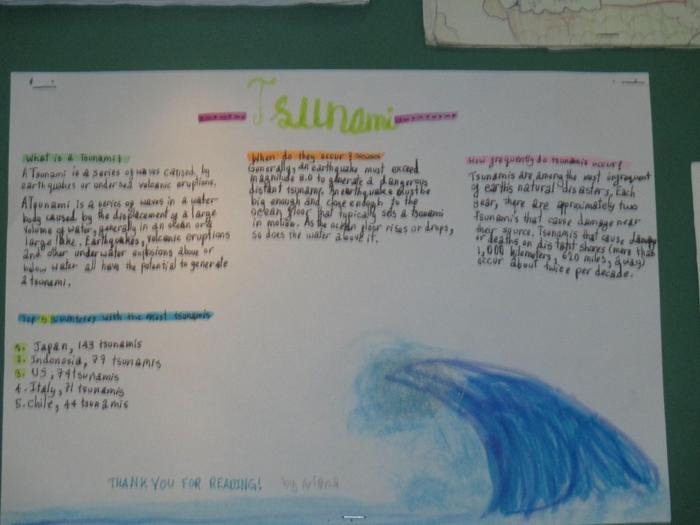 Tsunami
What is a Tsunami?
A Tsunami is a series of waves caused by
earthquakes or undersed volcanic eruptions.
A Tsunami is a series of waves in a water
body caused by the displacement of a large
volume of water, generally in an ocean or a
large lake. Earthquakes, volcanic eruptions
and other underwater explosions above or
below water all have the potential to generate
a tsunami.
When do they occur?
Generally, an earthquake must exceed
magnitude 8.0 to generate a dangerous
distant tsunamr. An earthquake must be
big enough and close enough to the
ocean floor that typically sets a tsunami
in motion. As the ocean floor rises or drops,
so does the water above it.
How frequently do tsunamis occur?
Tsunamis are among the most infrequent
of earths natural disasters, Each
year, there are aproximately two
Tsunamis that cause damage near
their source. Tsunamis that cause damage
or deaths on distant shores (more than
1,000 kilometers, 620 miles, away)
occur about twice per decade.
Top 5 countries with the most tsunamis
1. Japan, 143 tsunamis
2. Indonesia, 79 tsunamis
3. US, 74 tsunamis
4. Italy, 71 tsunamis
5. Chile, 44 tsunamis
THANK YOU FOR READING! by